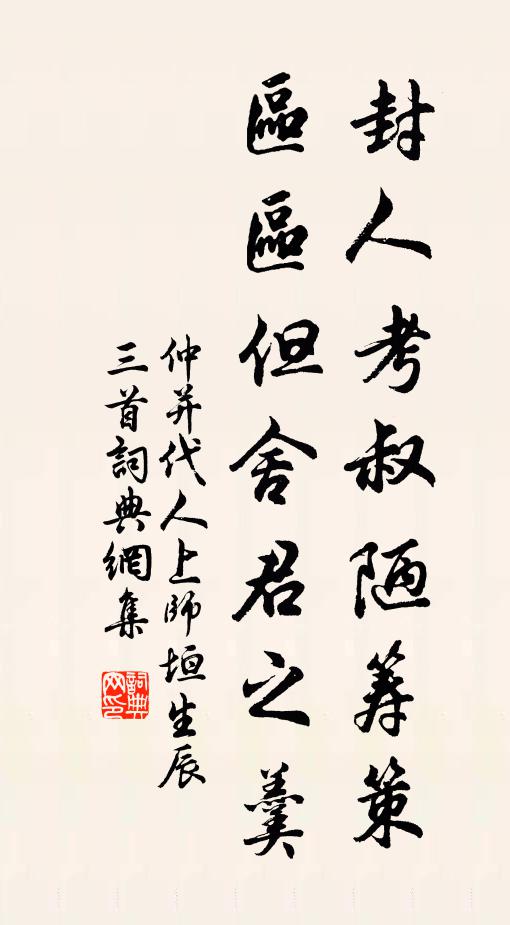 封人考叔陋筹策
區區但舍君之羹
仲并代人上師垣生辰
三首詞典網集
詞典网印